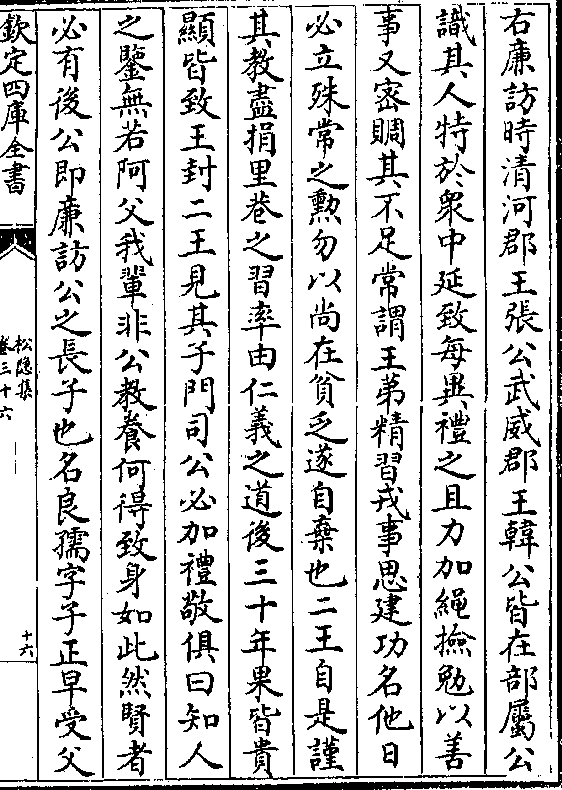 右廉訪時清河郡王張公武威郡王韓公皆在部屬公
識其人特於衆中延致每異禮之且力加繩撿勉以善
事又密賙其不足常謂王弟精習戎事思建功名他日
必立殊常之勲勿以尚在貧乏遂自棄也二王自是謹
其教盡捐里巷之習率由仁義之道後三十年果皆貴
顯皆致王封二王見其子門司公必加禮敬俱曰知人
之鑒無若阿父我輩非公教養何得致身如此然賢者
必有後公即廉訪公之長子也名良孺字子正早受父
欽定四庫全書
松隠集
卷三十六
十六